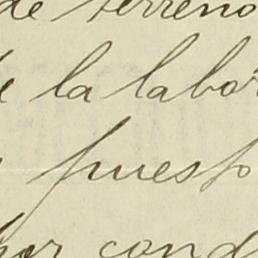 de terreno
la labor
puesto
por cond